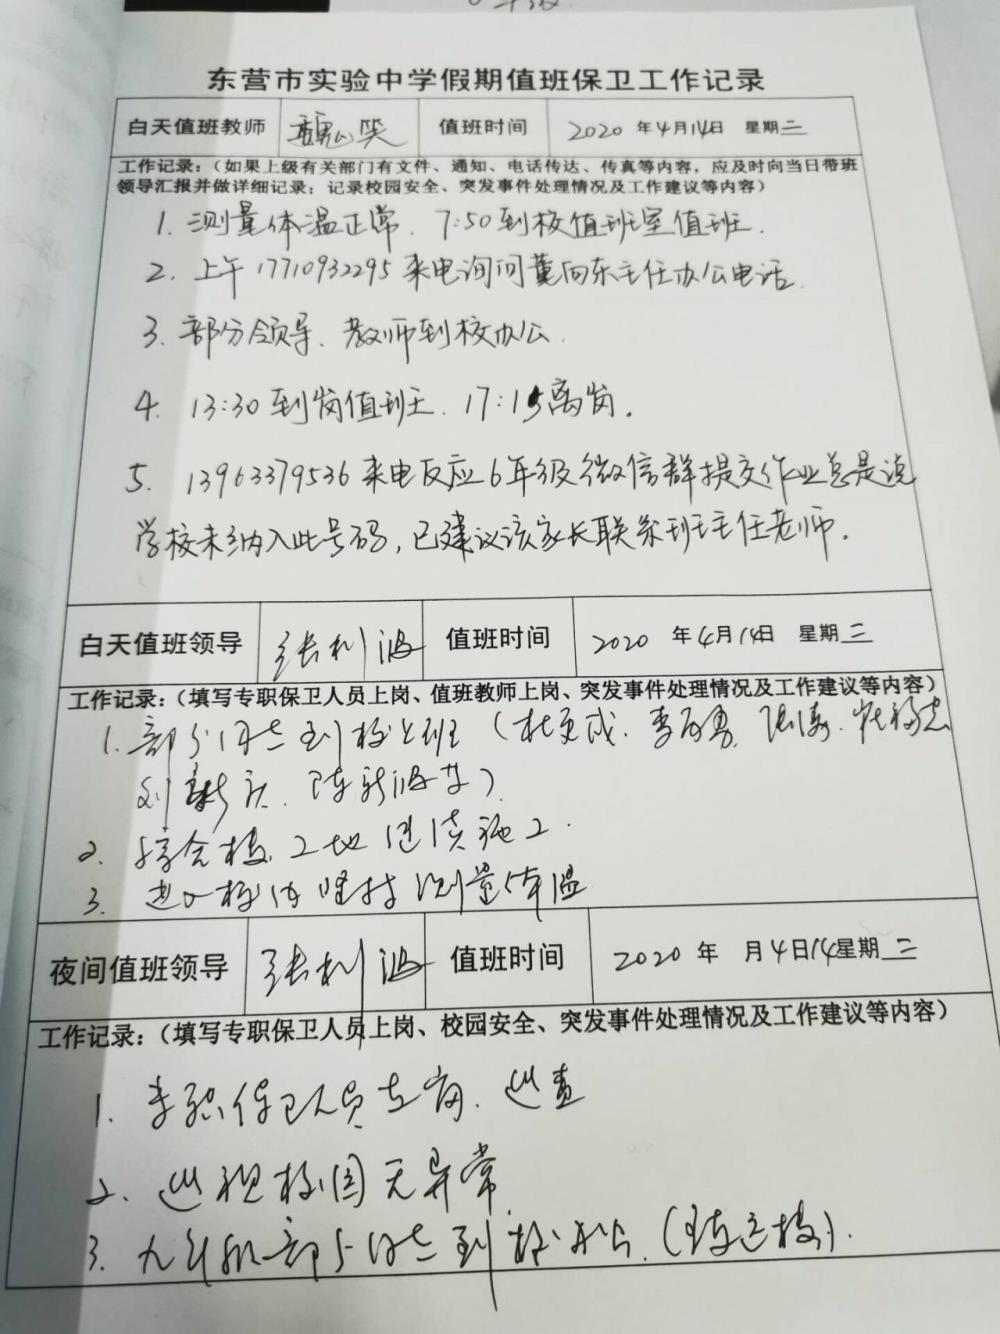 东营市实验中学假期值班保卫工作记录
白天值班教师 魏 笑 值班时间 2020 年4月14日 星期二
工作记录:(如果上级有关部门有文件、通知、电话传达、传真等内容,应及时向当日带班
领导汇报并做详细记录;记录校园安全、突发事件处理情况及工作建议等内容)
1. 测量体温正常. 7:50到校值班室值班.
2. 上午17710932295来电询问董向东主任办公电话.
3. 部分领导、教师到校办公.
4. 13:30到岗值班. 17:15离岗.
5. 13963379536来电反应6年级微信群提交作业总是说
学校未纳入此号码,已建议该家长联系班主任老师.
白天值班领导 张利波 值班时间 2020 年4月14日 星期二
工作记录:(填写专职保卫人员上岗、值班教师上岗、突发事件处理情况及工作建议等内容)
1. 部分同志到校上班(杜更成.
刘新庆、陈新波等)
2. 综合楼工地继续施工.
3. 进入校内坚持测量体温
夜间值班领导 张利波 值班时间 2020 年 月4日14星期二
工作记录:(填写专职保卫人员上岗、校园安全、突发事件处理情况及工作建议等内容)
1. 专职保卫人员在岗. 巡查
2. 巡视校园无异常
3. 九年级部分同志到校办公.